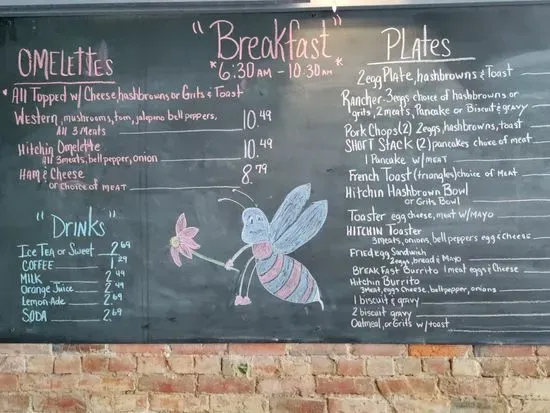 "Breakfast"
*6:30 AM - 10:30 AM*
OMELETTES
* All Topped w/ Cheese, hashbrowns or Grits & Toast
Western, mushrooms, tom, jalapeno bell peppers, 10.49
All 3 Meats
Hitchin Omelette 10.49
All 3 meats, bell pepper, onion
Ham & Cheese 8.79
or choice of meat
"Drinks"
Ice Tea or Sweet 2.69
COFFEE 1.29
MILK 2.49
Orange Juice 2.49
Lemon-Ade 2.69
SODA 2.69
PLATES
2 egg Plate, hashbrowns & Toast
Rancher 3 eggs choice of hashbrowns or
grits, 2 meats, Pancake or Biscuit & gravy
Pork Chops (2) 2 eggs, hashbrowns, toast
SHORT STACK (2) pancakes choice of meat
1 Pancake w/ meat
French Toast (triangles) choice of Meat
Hitchin Hashbrown Bowl
or Grits Bowl
Toaster egg cheese, meat w/ MAYO
HITCHIN Toaster
3 meats, onions, bell peppers egg & Cheese
Fried egg Sandwich
2 eggs, bread & Mayo
BREAKFAST Burrito 1 meat eggs & Cheese
Hitchin Burrito
3 Meat, eggs Cheese, bell pepper, onions
1 biscuit & gravy
2 biscuit gravy
Oatmeal, or Grits w/ toast